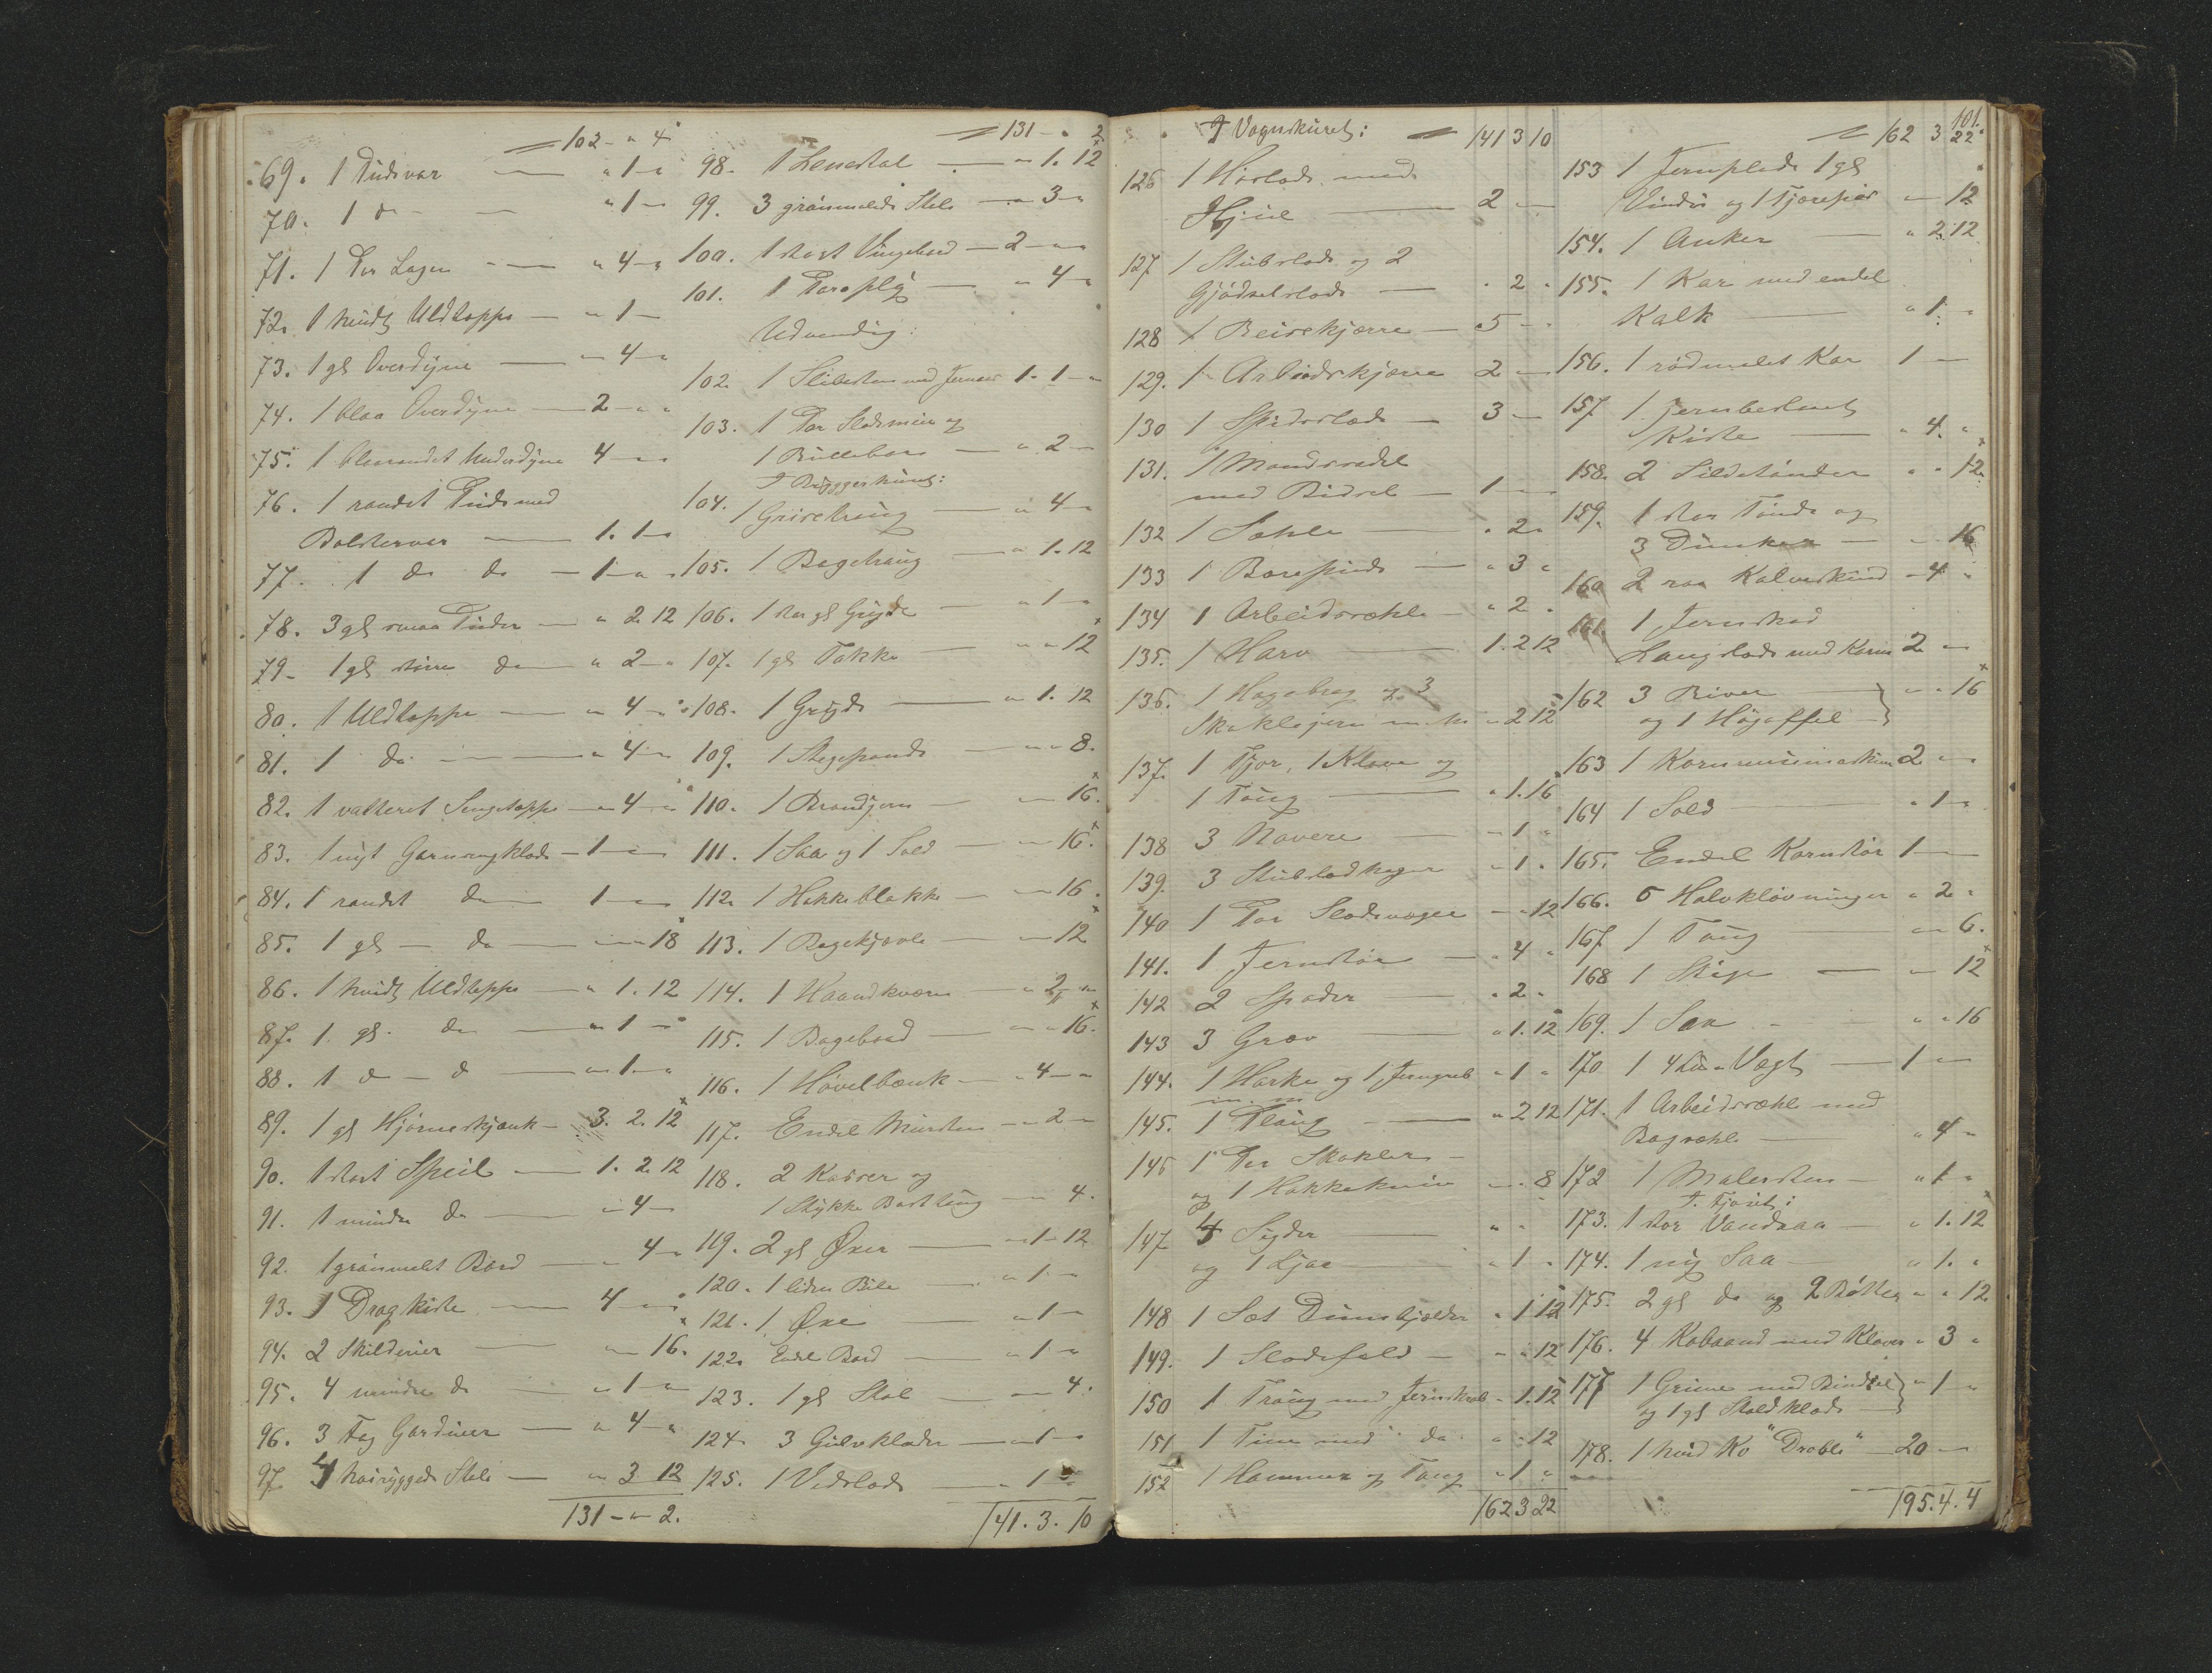 102 - " 4
69. 1 Pudevar — " 1 - "
70. 1 do - — " 1 - "
71. 1 Par Lagen — " 4 - "
72. 1 hvidt Uldteppe — " 1 -
73. 1 gl Overdyne — " 4 - "
74. 1 blaa Overdyne — 2 - " "
75. 1 blaarandet Underdyne 4 - "
76. 1 randet Pude med
Bolstervar — 1. 1 - "
77. 1 do do — 1 - " "
78. 3 gl smaa Puder — " 2. 12
79. 1 gl större do — " 2 - "
80. 1 Uldteppe — " 4 - "
81. 1 do — " 4 - "
82. 1 vatteret Sengeteppe — " 4 - "
83. 1 nyt Garnrugklæde — 1 - "
84. 1 randet do — 1 - "
85. 1 gl — do — " " 18
86. 1 hvidt Uldteppe — " 1. 12
87. 1 gl. do — " 1 - "
88. 1 d - d — " 1 - "
89. 1 gl Hjørneskjænk - 3. 2. 12
90. 1 stort Speil — 1. 2. 12
91. 1 mindre do — " 4 -
92. 1 grønmalet Bord — " 4 - "
93. 1 Dragkiste — 4 - "
94. 2 Skilderier — " " 16.
95. 4 mindre do — " 1 - "
96. 3 Fag Gardiner — " 4 - "
97. 4 høiryggede Stole — " 3 12
131 - " 2.
131 - " 2
98. 1 Lenestol — " 1. 12
99. 3 grønmalede Stole — " 3 - "
100. 1 stort Vingebord — 2 - " "
101. 1 Paraply — " 4 - "
Udvendig:
102. 1 Slibesten med 1. 1 - "
103. 1 Par Slædemeier og
1 Bullebor — " 2 -
I Bryggerhuset:
104. 1 Grisetraug — " 4 - "
105. 1 Bagetraug — " 1. 12
106. 1 stor gl Gryde — " 1 -
107. 1 gl Takke — " " 12
108. 1 Gryde — " 1. 12
109. 1 Stegepande — " " 8.
110. 1 Brandjern — " 16.
111. 1 Saa og 1 Sold — " 16.
112. 1 Hakkeblakke — " 16.
113. 1 Bagekjævle — " 12
114. 1 Haandkværn — " 2 - "
115. 1 Bagebord — " " 16.
116. 1 Høvelbænk — " 4 - "
117. Endel Mursten — " 2 -
118. 2 Kasser og
1 Stykke Basttaug — " 4.
119. 2 gl Øxer — " 1 - 12
120. 1 liden Bile — " 1 -
121. 1 Øxe — " 1 -
122. Endel Bord — " 1 - "
123. 1 gl Stol — " " 4.
124. 3 Gulvklæder — " 1 - "
125. 1 Vedslæde — " 1 "
141. 3. 10
I Vognskuret: 141 3 10
126 1 Høslæde med
Hjul — 2 —
127 1 Stubslæde og 2
Gjødselslæde — " 2 "
128 1 Reisekjærre — 5 - "
129. 1 Arbeidskjærre 2 —
130 1 Spidsslæde — 3 —
131. 1 Mandssadel
med Bidsel — 1 —
132 1 Sæhle " 2 "
133 1 Borespinde — " 3 "
134 1 Arbeidssæhle — " 2 "
135. 1 Harv — 1. 2 12
136. 1 Hagebrag og 3
Skaklejern m. m. " 2 12
137. 1 Tjor, 1 Klave og
1 Taug — " 1. 16
138 3 Navere — " 1 "
139. 3 Stubslædhager " 1 "
140 1 Par Slædevoger — " 12
141. 1 Jernstør — " 4 "
142 2 Spader — " 2 "
143 3 Grev — " 1. 12
144. 1 Harke og 1 Jerngreb " 1 "
m. m
145. 1 Plaug — " 2 12
146 1 Par Skakler -
og 1 Hakkekniv — " 8
147 4 Sigder — " "
og 1 Ljaa — " 1 "
148 1 Sæt Dumbjelder " 1 12
149. 1 Slædefeld — " " 12
150 1 Traug med Jernskrab - 1. 12
151 1 Tine med do. " " 12
152 1 Hammer og Tang " 1 "
162 3 22
101.
162 3 22
153 1 Jernplade 1 gl
Vindu og 1 Tjærefad — 12
154. 1 Anker — " 2. 12
155. 1 Kar med endel
Kalk — " 1. "
156. 1 rødmalet Kar 1 —
157 1 Jernbeslaaet
Kiste — " 4. "
158. 2 Sildetønder " " 12
159. 1 stor Tønde og
3 Dunker — " 16
160 2 raa Kalveskind - 4 "
161 1 Jernskod
Langslæde med Karm 2 —
162 3 River — " " 16
og 1 Høgaffel
163 1 Kornrensemaskin 2 —
164 1 Sold " 1 "
165. Endel Kornstør 1 —
166. 5 Halvkløvninger " 2 "
167 1 Taug " " 6.
168 1 Stige — " 12
169. 1 Sav - " " 16
170 1 Vægt — 1 —
171. 1 Arbeidssæhle med
Bagsæhle — " 4 -
172 1 Malersten — " 1 "
I Fjøset:
173. 1 stor Vandsaa — " 1. 12
174. 1 ny Saa — " 1. "
175. 2 gl do og 2 Bøtter " " 12
176. 4 Kobaand med Klaver " 3 "
177 1 Grime med Bindsel " 1 "
og 1 gl Staldklæde
178. 1 hvid Ko "Drable" — 20 —
195. 4. 4